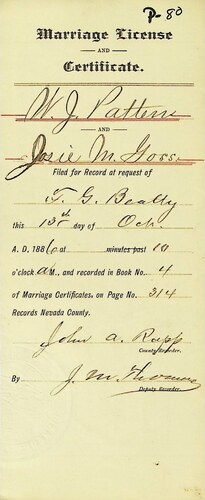 P-80
Marriage License
AND
Certificate.
W. J. Patten
AND
Josie M. Goss
Filed for Record at request of
T. G. Beatty
this 13th day of Oct.
A. D. 1886 at minutes past 10
o'clock A M., and recorded in Book No. 4
of Marriage Certificates, on Page No. 314
Records Nevada County.
John A. Rapp
County Recorder.
By J. M. Thomas
Deputy Recorder.